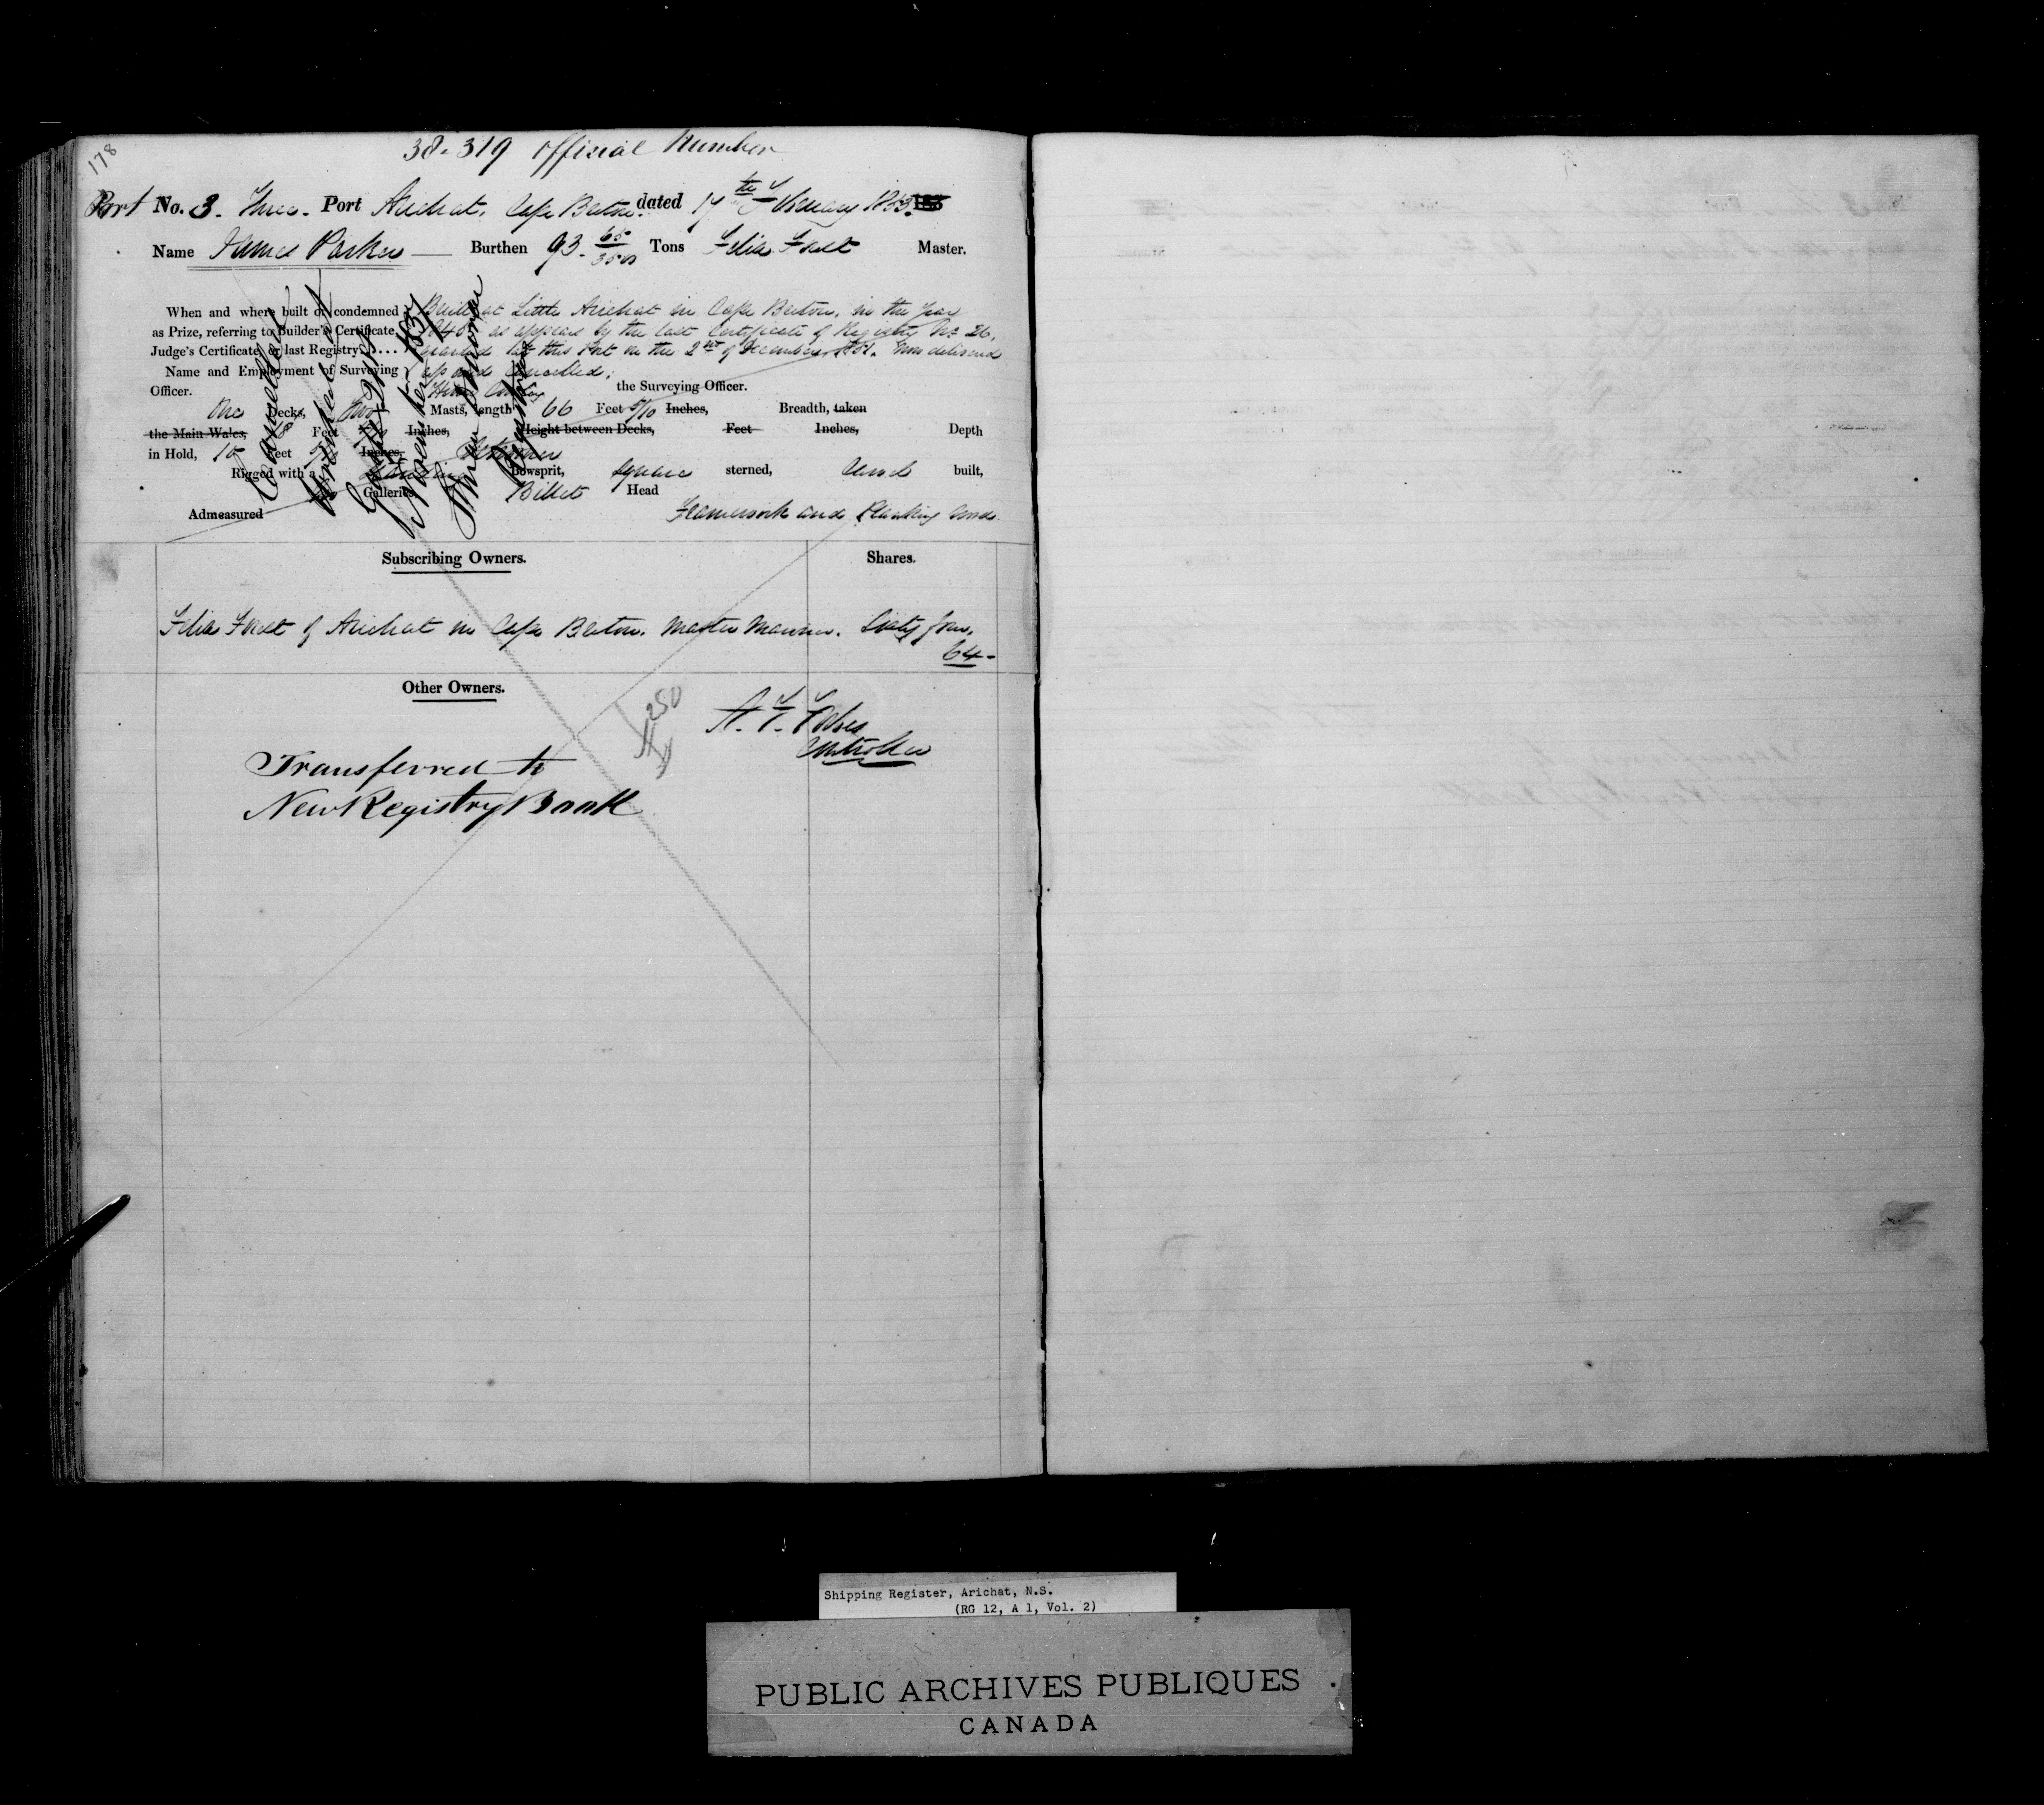 178
38.319 Official Number
Port No. 3. Three. Port Arichat, Cape Breton. dated 17th February 1853.
Name James Parker Burthen 93 65/3500 Tons Felix Forest Master.
When and where built or condemned Built at Little Arichat in Cape Breton, in the year
as Prize, referring to Builder's Certificate, as appears by the last Certificate of Registry No. 26,
Judge's Certificate, or last Registry.... granted at this Port on the 2nd of December 1851. now delivered
Name and Employment of Surveying up and Cancelled;
Officer. the Surveying Officer.
One Decks, Two Masts, length 66 Feet 5/10 Inches, Breadth, taken
the Main Wales, 18 Feet Inches, Height between Decks, Feet Inches, Depth
in Hold, 10 Feet Inches, Schooner
Rigged with a Standing Bowsprit, Square sterned, Carvel built,
Galleries, Billet Head
Admeasured Framework and Planking Wood.
Cancelled
Registrar
Subscribing Owners. Shares.
Felix Forest of Arichat in Cape Breton. Master Mariner. Sixty four.
64-
Other Owners.
250
Controller
Transferred to
New Registry Book
Shipping Register, Arichat, N.S.
(RG 12, A 1, Vol. 2)
PUBLIC ARCHIVES PUBLIQUES
CANADA